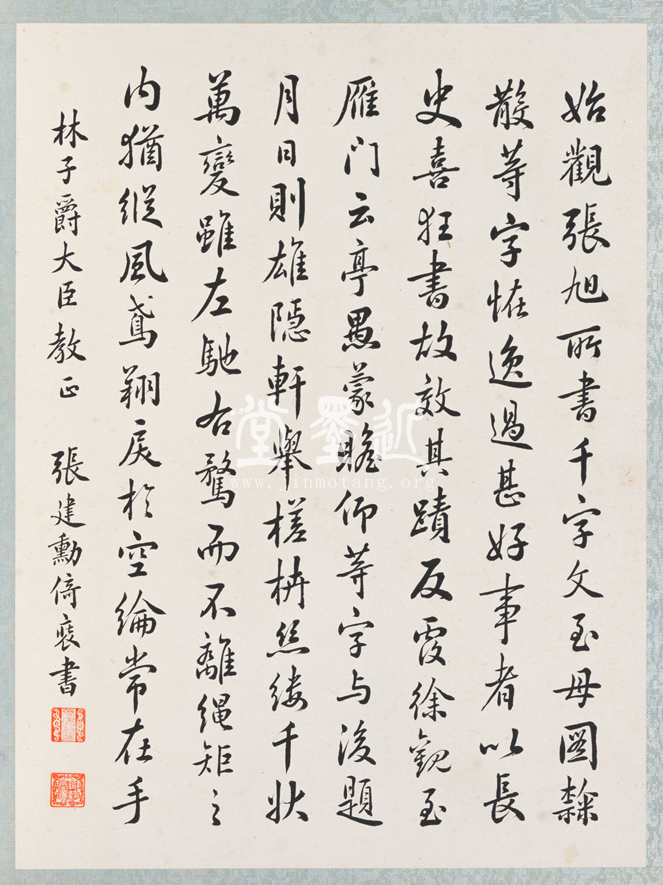 始觀張旭所書千字文至母圖隸
散等字恠逸過甚好事者以長
史喜狂書故效其蹟反覆徐觀至
雁門云亭愚蒙瞻仰等字与後題
月日則雄隱軒舉槎枿絲縷千狀
萬變雖左馳右騖而不離繩矩之
内猶縱風鳶翔戾於空綸常在手
林子爵大臣教正 張建勳倚裝書
近墨堂
www.jinmotang.org